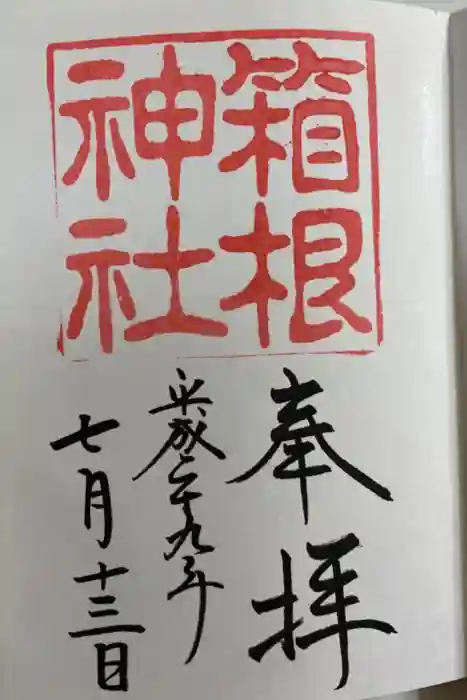 箱根
神社
奉拝
平成二十九年
七月十三日